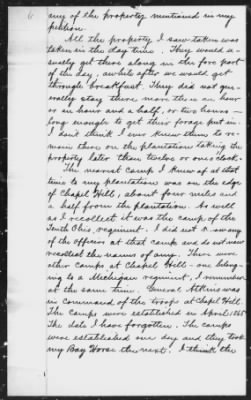 6
any of the property mentioned in my
petition.
All the property I saw taken was
taken in the day time. They would u-
sually get there along in the fore part
of the day, awhile after we would get
through breakfast. They did not gen-
erally stay there more than an hour
or an hour and a half, or two hours -
long enough to get their forage put in.
I don't think I ever knew them to re-
main there on the plantation taking the
property later than twelve or one o'clock.
The nearest camp I knew of at that
time to my plantations was on the edge
of Chapel Hill, about four miles and
a half from the plantation. As well
as I recollect it was the camp of the
Tenth Ohio, regiment. I did not know any
of the officers at that camp and do not now
recollect the names of any. There were
other camps at Chapel Hill - one belong-
ing to a Michigan regiment, I remember
at the same time. General Atkins was
in command of the troops at Chapel Hill
The camps were established in April 1865
The date I have forgotten. The camps
were established one day and they took
my Bay Horse the next. I think the